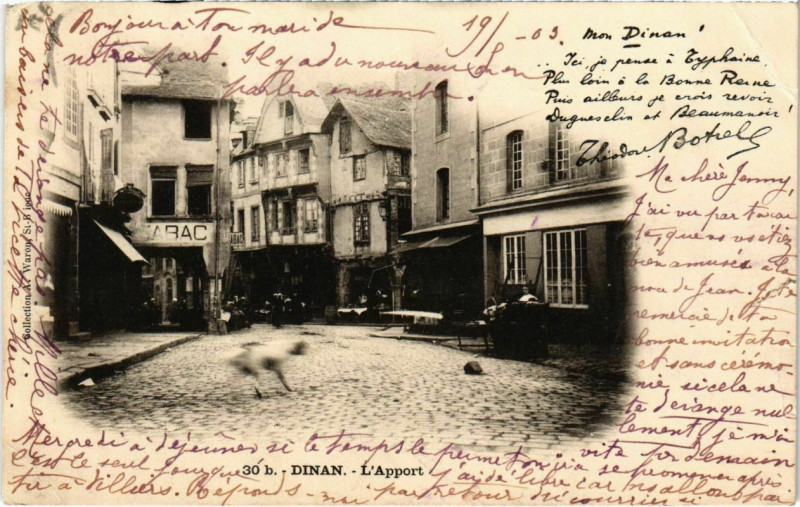 Bonjour à ton mari de
notre part. Il y a du nouveau; l'on
parlera ensemble.
19/ - 03.
Mon Dinan!
.. Ici, je pense à Typhaine,
Plus loin à la Bonne Reine
Puis ailleurs je crois revoir
Duguesclin et Beaumanoir!
Théodore Botrel
Ma chère Jenny,
J'ai vu par ta car
te, que vous vs étiez
bien amusés à la
noce de Jean. Je te
remercie de ta
bonne invitation
et sans cérémo-
nie, si cela ne
te dérange nul
lement, je m'in
vite pr demain
Mercredi à déjeuner si le temps le permet on ira se promener après
c'est le seul jour que j'aide libre car ns allons par
tir à Villiers. Réponds- moi par retour du courrier si
cela te dérange
TABAC
Collection A. Waron, St-Brieuc
30 b. - DINAN. - L'Apport